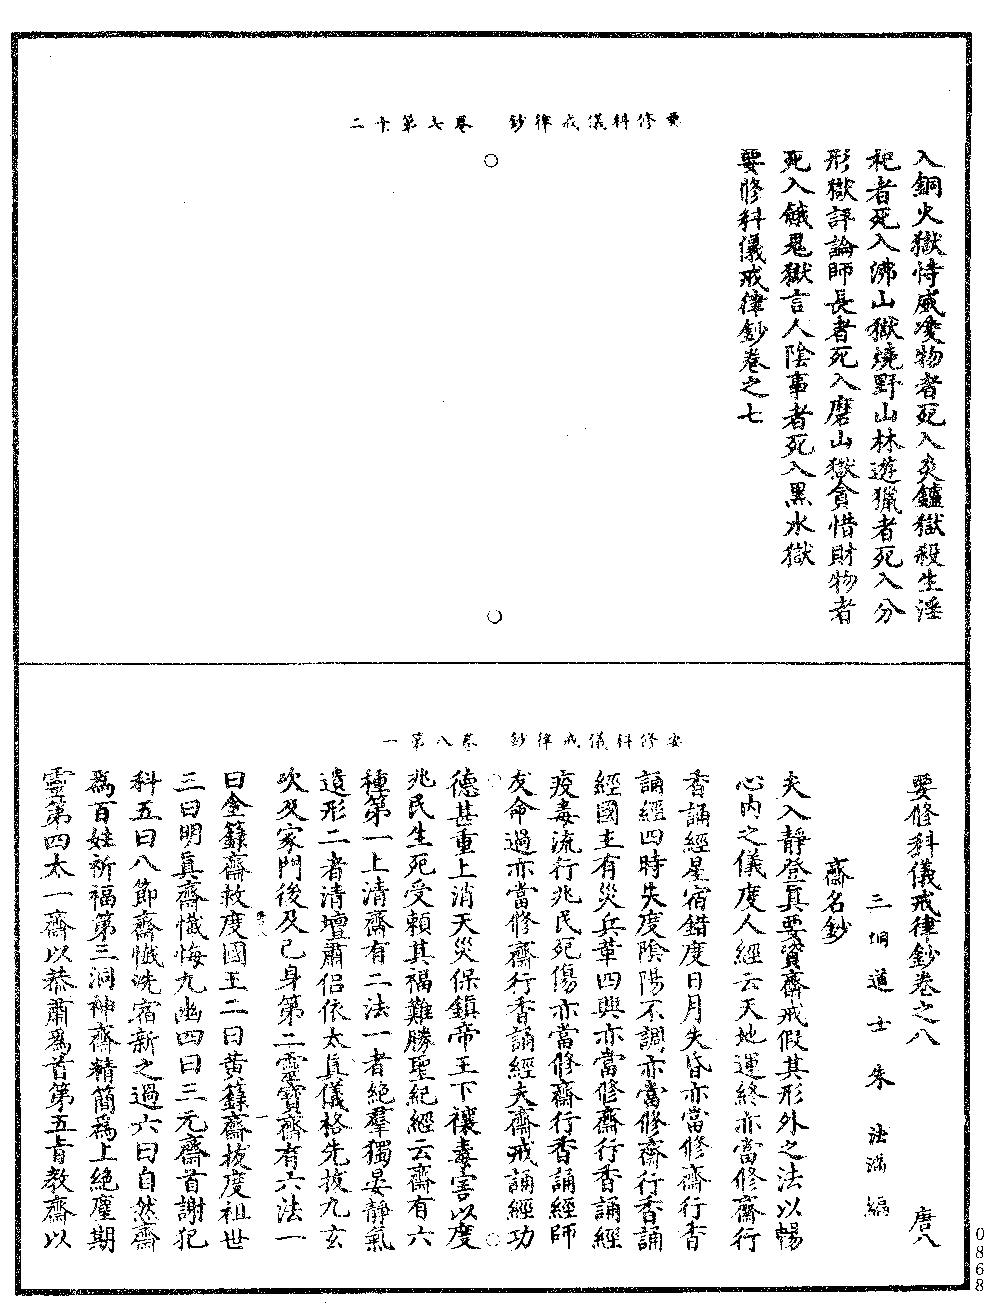 要修科儀戒律鈔　卷七第十二
入銅火獄恃威凌物者死入炎鑪獄殺生淫
祀者死入沸山獄燒野山林遊獵者死入分
形獄評論師長者死入磨山獄貪惜財物者
死入餓鬼獄言人陰事者死入黑水獄
要修科儀戒律鈔卷之七
要修科儀戒律鈔　卷八第一
要修科儀戒律鈔卷之八　唐八
三洞道士朱法滿編
齋名鈔
夫入靜登真要資齋戒假其形外之法以暢
心內之儀度人經云天地運終亦當修齋行
香誦經星宿錯度日月失昏亦當修齋行香
誦經四時失度陰陽不調亦當修齋行香誦
經國主有災兵革四興亦當修齋行香誦經
疫毒流行兆民死傷亦當修齋行香誦經師
友命過亦當修齋行香誦經夫齋戒誦經功
德甚重上消天災保鎮帝王下禳毒害以度
兆民生死受賴其福難勝聖紀經云齋有六
種第一上清齋有二法一者絕羣獨宴靜氣
遺形二者清壇肅侶依太真儀格先拔九玄
次及家門後及己身第二靈寶齋有六法一
曰金籙齋救度國王二曰黃籙齋拔度祖世
三曰明真齋懺悔九幽四曰三元齋首謝犯
科五曰八節齋懺洗宿新之過六曰自然齋
為百姓祈福第三洞神齋精簡為上絕塵期
靈第四太一齋以恭肅為首第五旨教齋以
0868